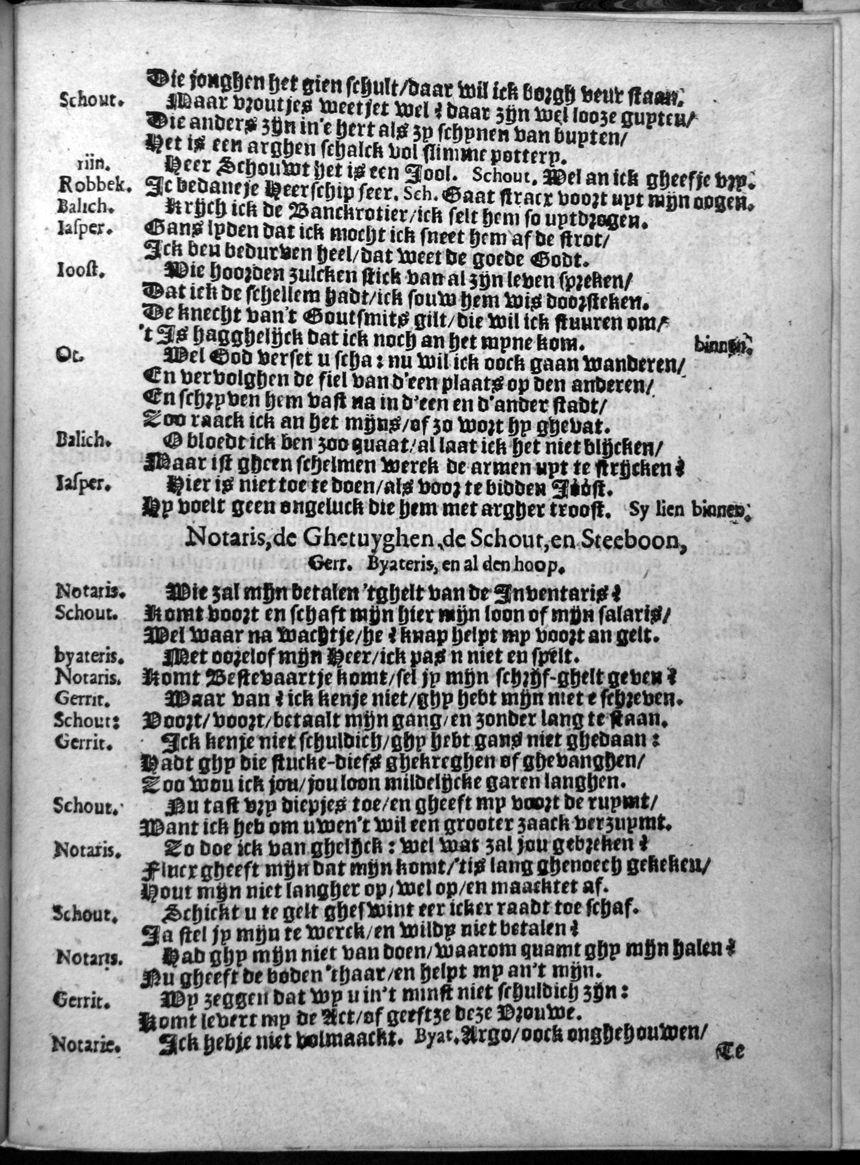 Die jonghen het gien schult/daar wil ick borgh veur staan.
Schout. Maar vroutjes weetjet wel? daar zijn wel looze guyten/
Die anders zijn in'e hert als zy schynen van buyten/
Het is een arghen schalck vol slimme pottery.
riin. Heer Schouwt het is een Jool. Schout. Wel an ick gheefje vry.
Robbek. Jc bedaneje Heerschip seer. Sch. Gaat stracx voort uyt mijn oogen.
Balich. Krijch ick de Banckrotier/ick selt hem so uytdrogen.
Iasper. Gans lyden dat ick mocht ick sneet hem af de strot/
Ick ben bedurven heel/dat weet de goede Godt.
Ioost. Wie hoorden zulcken stick van al zijn leven spreken/
Dat ick de schellem hadt/ick souw hem wis doorsteken.
De knecht van't Goutsmits gilt/die wil ick stuuren om/
't Is hagghelijck dat ick noch an het myne kom. binnen.
Ot. Wel God verset u scha: nu wil ick oock gaan wanderen/
En vervolghen de fiel van d'een plaats op den anderen/
En schryven hem vast na in d'een en d'ander stadt/
Zoo raack ick an het mijns/of zo wort hy ghevat.
Balich. O bloedt ick ben zoo quaat/al laat ick het niet blijcken/
Maar ist gheen schelmen werck de armen uyt te strijcken?
Iasper. Hier is niet toe te doen/als voor te bidden Joost.
Hy voelt geen ongeluck die hem met argher troost. Sy lien binnen.
Notaris, de Ghetuyghen, de Schout, en Steeboon,
Gerr. Byateris, en al den hoop.
Notaris. Wie zal mijn betalen 'tghelt van de Inventaris?
Schout. Komt voort en schaft mijn hier mijn loon of mijn salaris/
Wel waar na wachtje/he? knap helpt my voort an gelt.
byateris. Met oorelof mijn Heer/ick pas n niet en spelt.
Notaris. Komt Bestevaartje komt/sel jy mijn schrijf-ghelt geven?
Gerrit. Waar van? ick kenje niet/ghy hebt mijn niet e schreven.
Schout: Voort/voort/betaalt mijn gang/en zonder lang te staan.
Gerrit. Ick kenje niet schuldich/ghy hebt gans niet ghedaan:
Hadt ghy die stucke-diefs ghekreghen of ghevanghen/
Zoo wou ick jou/jou loon mildelijcke garen langhen.
Schout. Nu tast vry diepjes toe/en gheeft my voort de ruymt/
Want ick heb om uwen't wil een grooter zaack verzuymt.
Notaris. Zo doe ick van ghelijck: wel wat zal jou gebreken?
Flucx gheeft mijn dat mijn komt/'tis lang ghenoech gekeken/
Hout mijn niet langher op/wel op/en maacktet af.
Schout. Schickt u te gelt gheswint eer icker raadt toe schaf.
Ja stel jy mijn te werck/en wildy niet betalen?
Notaris. Had ghy mijn niet van doen/waarom quamt ghy mijn halen?
Nu gheeft de boden 'thaar/en helpt my an't mijn.
Gerrit. Wy zeggen dat wy u in't minst niet schuldich zijn:
Komt levert my de Act/of geeftze deze Vrouwe.
Notarie. Ick hebje niet volmaackt. Byat. Argo/oock onghehouwen/
Te